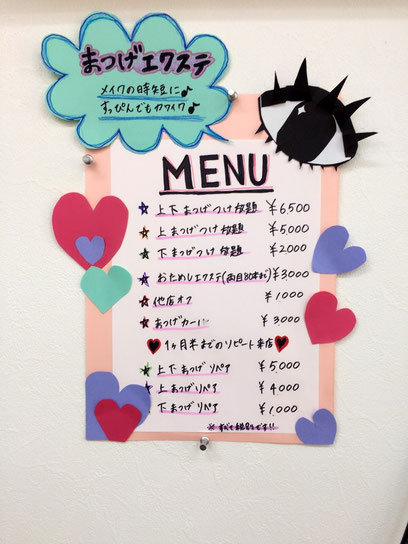 まつげエクステ
メイクの時短に♪
すっぴんでもカワイク♪
MENU
☆上下まつげつけ放題 ¥6,500
☆上まつげつけ放題 ¥5,000
☆下まつげつけ放題 ¥2000
☆おためしエクステ(両目80本まで) ¥3000
☆他店オフ ¥1000
☆まつげカール ¥3000
♥1ヶ月半までのリピート来店♥
☆上下まつげリペア ¥5,000
☆上まつげリペア ¥4,000
☆下まつげリペア ¥1,000
※すべて税別です!!